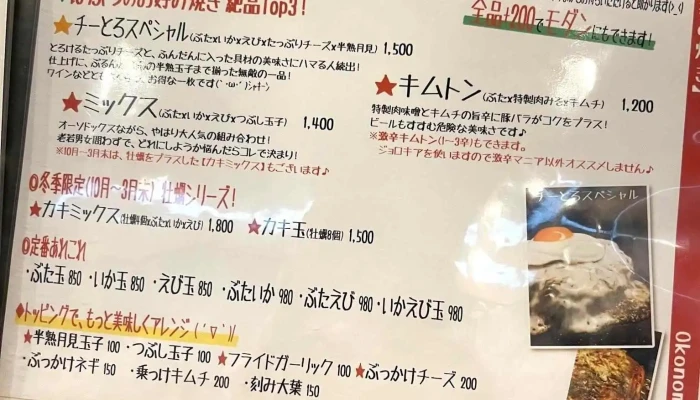 お好み焼き 絶品Top3！
全品+200でモダンにもできます！
★チーとろスペシャル(ぶたxいかxえびxたっぷりチーズx半熟月見) 1,500
とろけるたっぷりチーズと、ふんだんに入った具材の美味さにハマる人続出！
仕上げに、ぷるんの半熟玉子まで揃った無敵の一品！
ワインなどとも お得な一枚です
★キムトン(ぶたx特製肉みそxキムチ) 1,200
特製肉味噌とキムチの旨辛に豚バラがコクをプラス！
ビールもすすむ危険な美味さです♪
※激辛キムトン(1〜3辛)もできます。
ジョロキアを使いますので激辛マニア以外オススメしません♪
★ミックス(ぶたxいかxえびxつぶし玉子) 1,400
オーソドックスながら、やはり大人気の組み合わせ！
老若男女問わずで、どれにしようか悩んだらコレで決まり！
※10月〜3月末は、牡蠣をプラスした【カキミックス】もございます♪
冬季限定(10月〜3月末) 牡蠣シリーズ！
★カキミックス(牡蠣4個xぶたxいかxえび) 1,800 ★カキ玉(牡蠣8個) 1,500
定番あれこれ
・ぶた玉 850 ・いか玉 850 ・えび玉 850 ・ぶたいか 980 ・ぶたえび 980 ・いかえび玉 980
◆トッピングで、もっと美味しくアレンジ(´▽`)ﾉ
★半熟月見玉子 100 ・つぶし玉子 100 ★フライドガーリック 100 ★ぶっかけチーズ 200
・ぶっかけネギ 150 ・乗っけキムチ 200 ・刻み大葉 150
チーとろスペシャル
Okonom